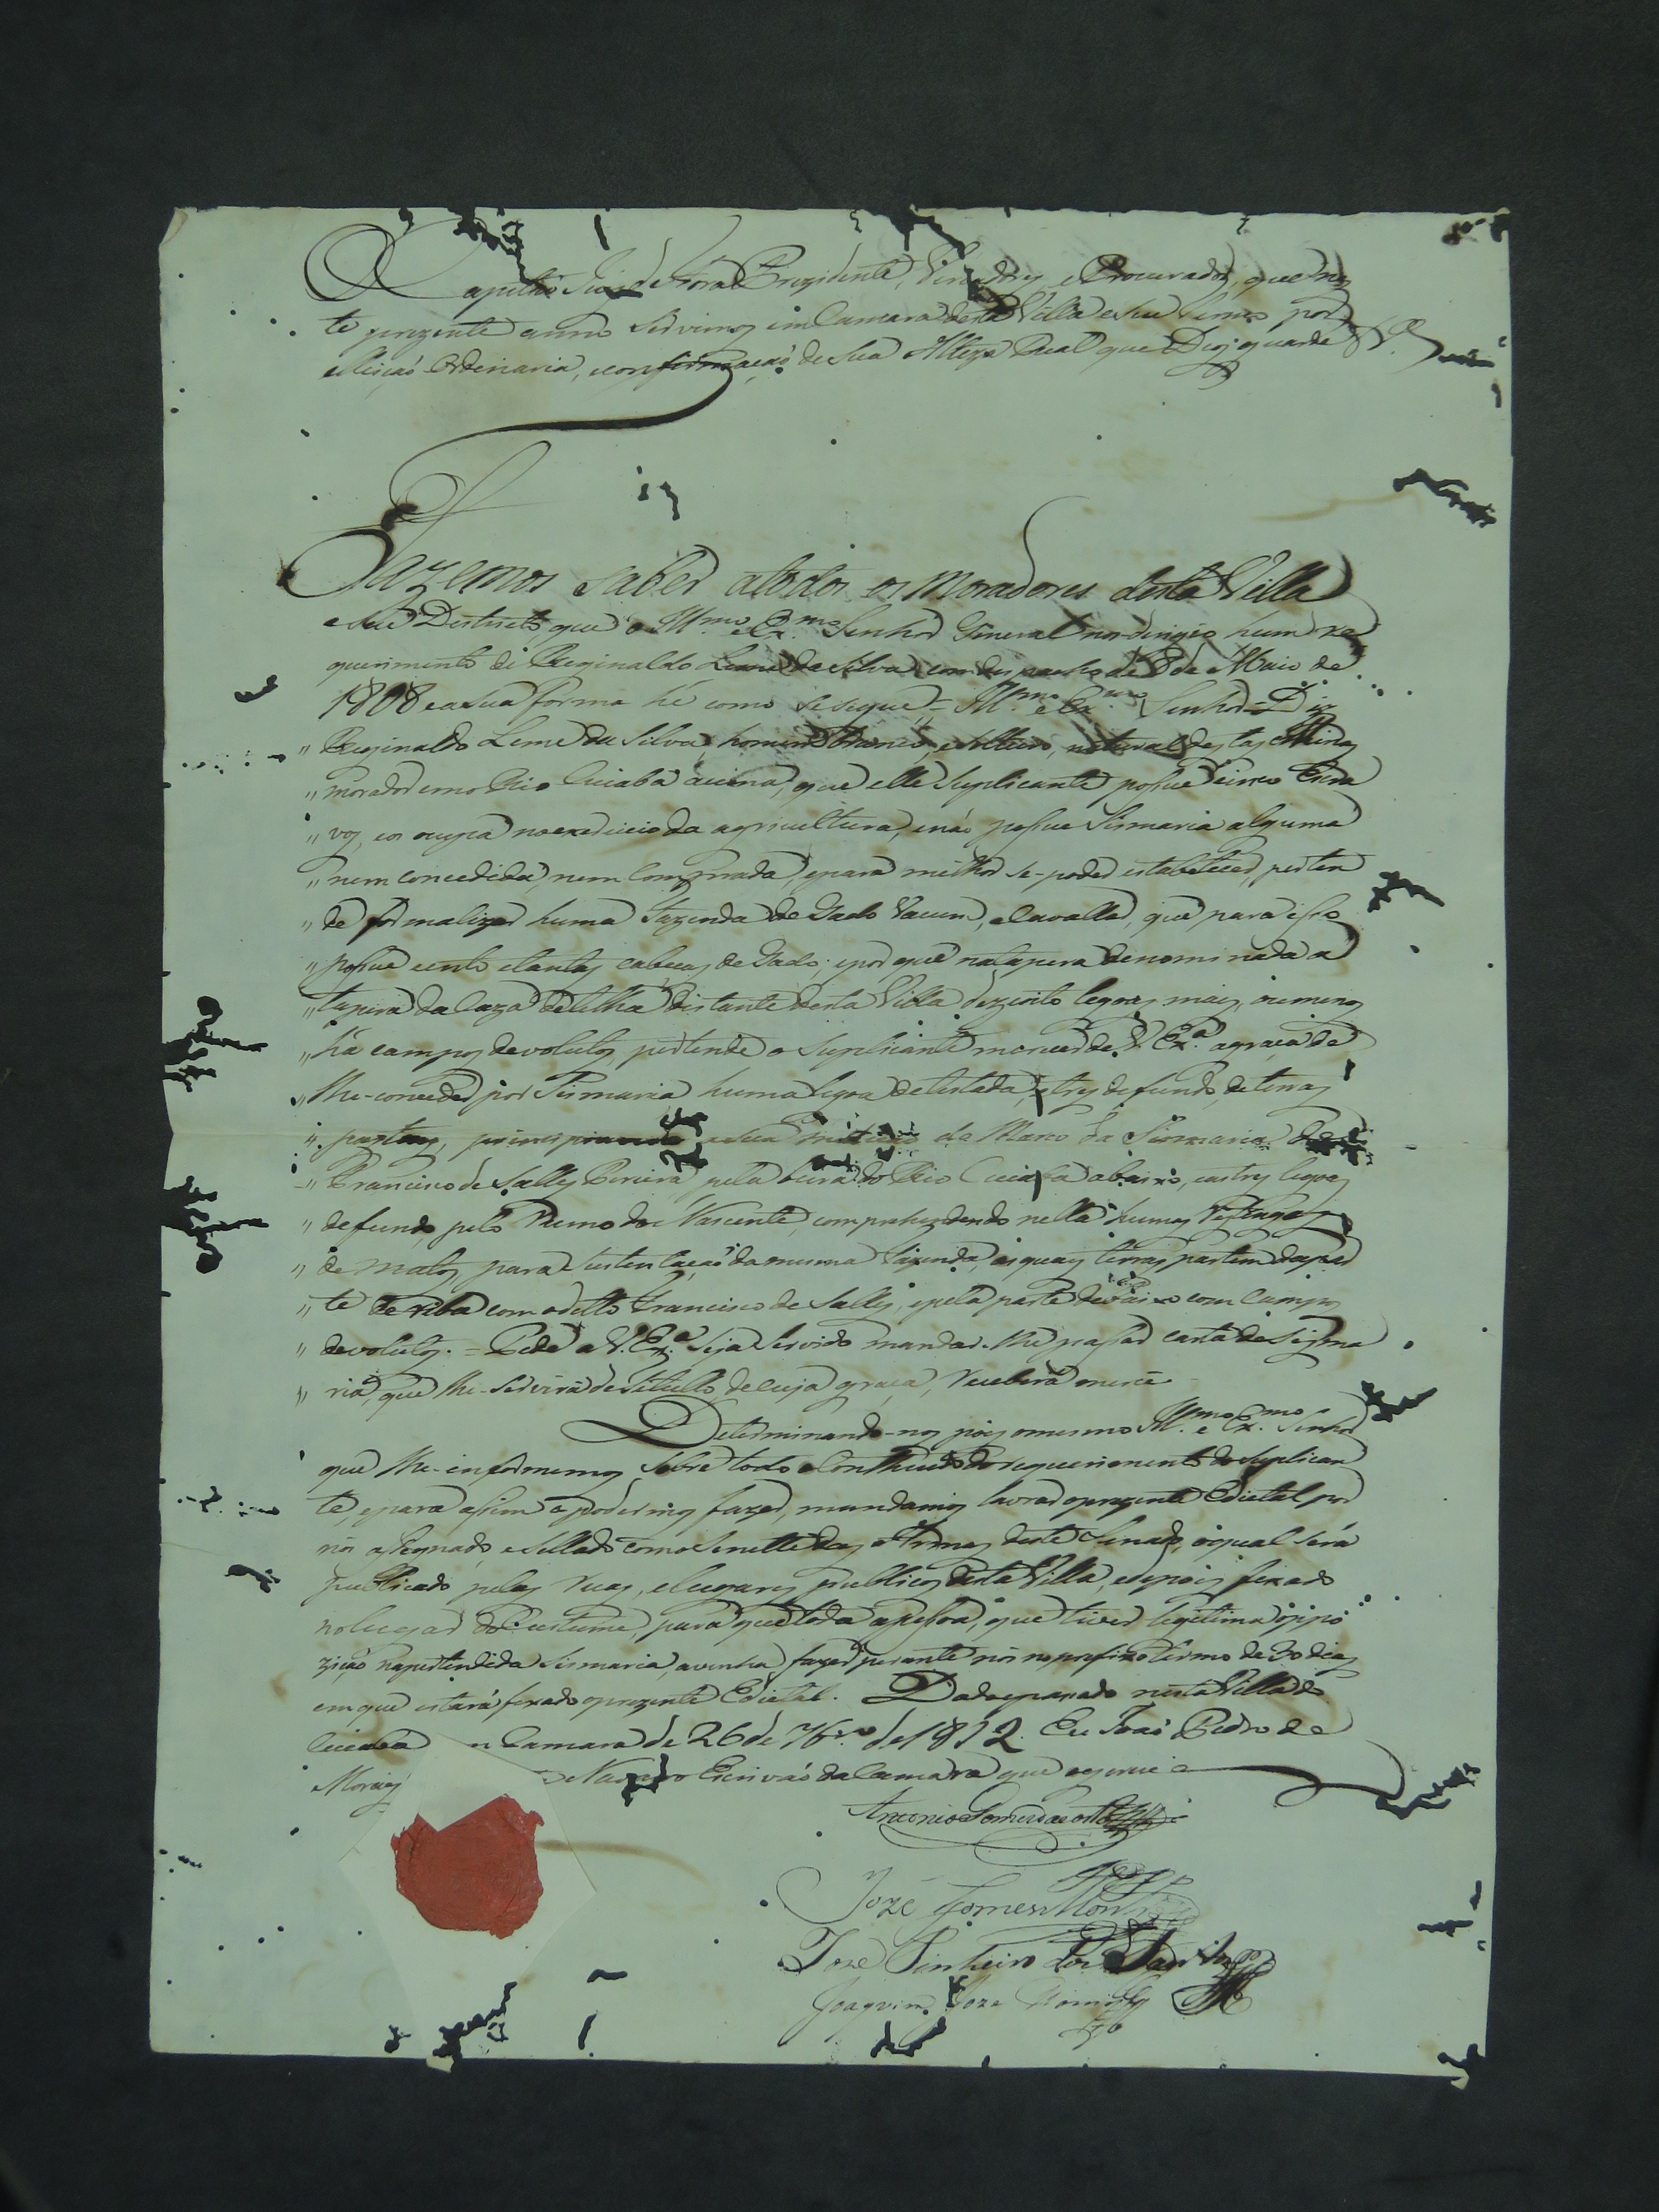 Capitão Juiz de Fóra Prezidente, Veriadores, e Procurador, que nes
te prezente anno servimos em Camara desta Villa e seu Termo por
elleição Ordenaria, e confirmação de Sua Alteza Real que Deos guarde &ª.
Fazemos saber a todos os Moradores desta Villa
e seu Destricto, que o Ill.mo e Ex.mo Senhor General nos dirigio hum re
querimento de Reginaldo Leme da Silva com despacho de 8 de Maio de
1808 e a sua forma hé como se segue = Ill.mo e Ex.mo Senhor = Diz
" Reginaldo Leme da Silva, homem branco, e solteiro, natural destas Minas
" morador em o Rio Cuiabá acima, que elle Suplicante possue cinco Escra
" vos, e os ocupa no exercicio da agricultura, e não possue Sismaria alguma
" nem concedida, nem comprada, e para milhor se-poder estabelecer, perten
" de formalizar huma Fazenda de Gado Vacum, e Cavallar, que para isso
" possue cento e tantas cabeças de Gado; e por que na tapera denominada a
" tapera da Caza de telha distante desta Villa dezoito legoas mais, ou menos
" há campos devolutos, pertende o Suplicante merecer de V. Ex.ª a graça de
" lhe-conceder por Sismaria huma legoa de testada, e tres de fundo, de terras
" pastaes, principiando a sua do Marco da Sismaria de
" Francisco de Salles Pereira pela beira do Rio Cuiabá abaixo, e as tres legoas
" de fundo, pelo Rumo do Nascente, comprehendendo nella humas Restingas
" de matos, para sustentação da mesma Fazenda, as quaes terras partem da par
" te de riba com o ditto Francisco de Salles, e pela parte de baixo com Campos
" devolutos. = Pede a V. Ex.ª seja servido mandar-lhe passar carta de Sisma
" ria, que lhe-servirá de titullo, de cuja graça, receberá mercê
Determinando-nos pois o mesmo Ill.mo e Ex.mo Senhor
que lhe-informemos sobre todo o Contheudo do requerimento do Suplican
te, e para assim o podermos fazer, mandamos lavrar o prezente Edictal por
nós assignado, e sellado com o Sinette das Armas deste Senado, o qual será
publicado pelas ruas, e lugares publicos desta Villa, e depois fixado
no lugar do Custume, para que toda a pessoa, que tiver legitima oppo
zição na pertendida Sismaria, a venha fazer perante nós no prefixo termo de 30 dias
em que estará fixado o prezente Edictal. Dado e passado nesta Villa do
Cuiabá em Camara de 26 de 7br.º de 1812. Eu João Pedro de
Moraes Escrivão da Camara que o escrevi
Antonio
José Gomes Monteiro
Jose Pinheiro dos Santos
Joaquim Joze